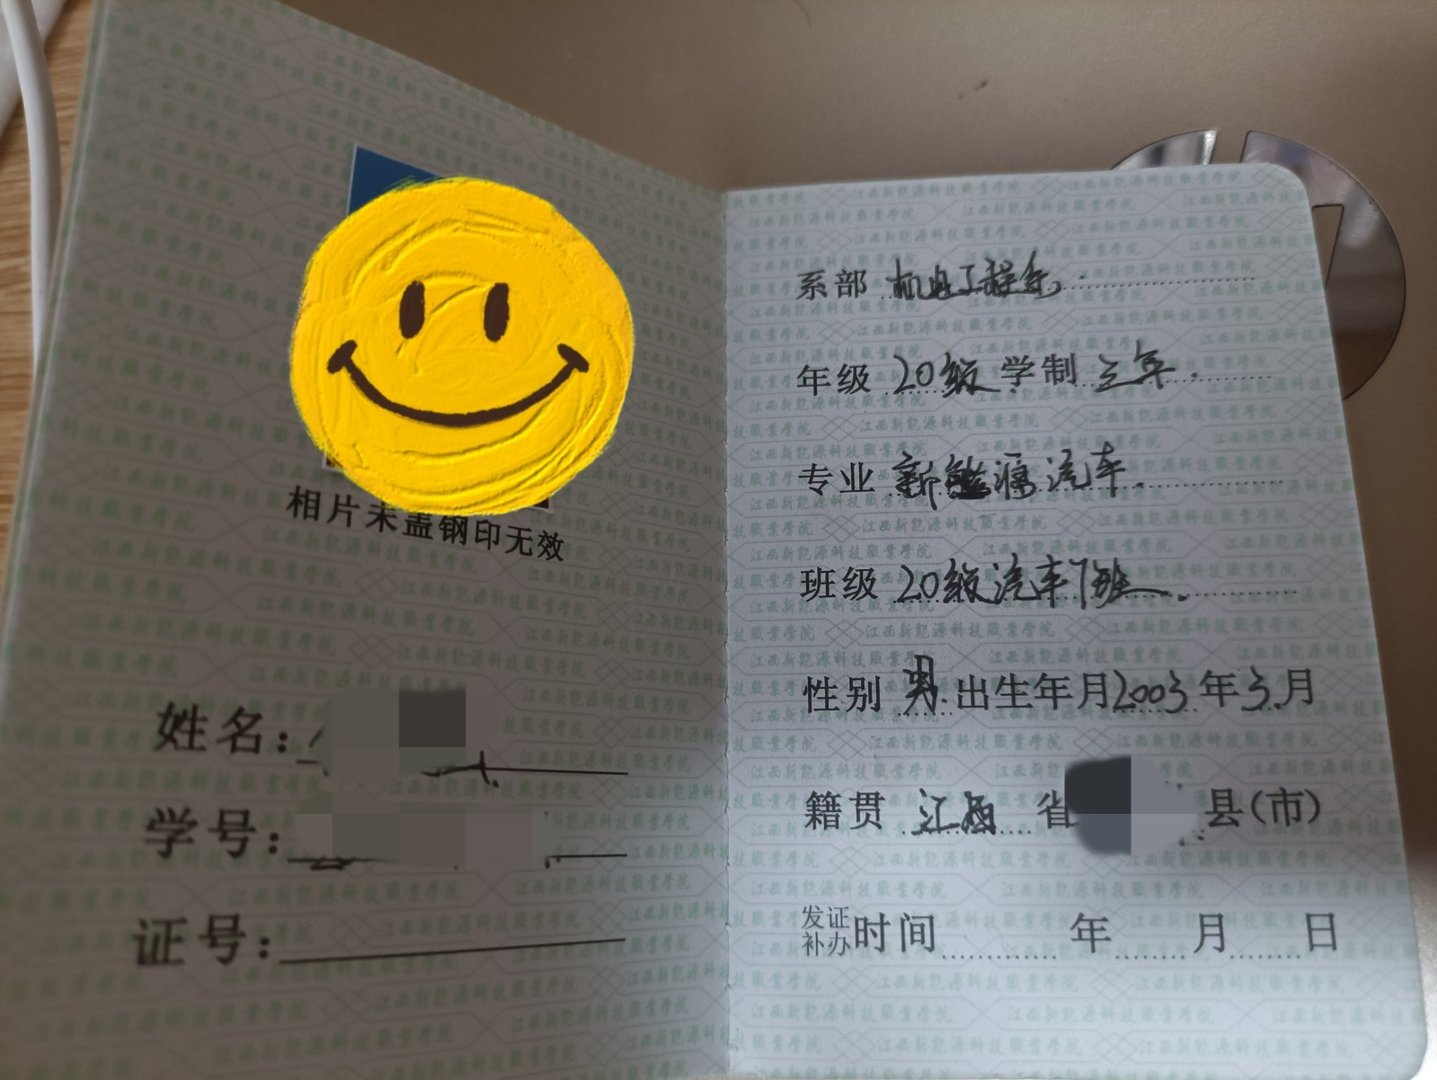 相片未盖钢印无效
姓名：
学号：
证号：
系部 机电工程系
年级 20级 学制 三年
专业 新能源汽车
班级 20级汽车7班
性别 男 出生年月 2003年3月
籍贯 江西 省 县(市)
发证补办时间 年 月 日
江西新能源科技職業学院